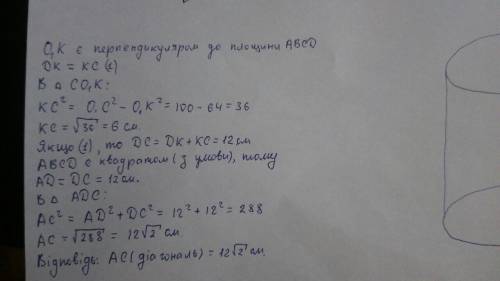 O₁K є перпендикуляром до площини ABCD
DK = KC (1)
В △ CO₁K:
KC² = O₁C² - O₁K² = 100 - 64 = 36
KC = √36 = 6 см
Якщо (1), то DC = DK + KC = 12 см
ABCD є квадратом (з умови), тому
AD = DC = 12 см.
В △ ADC:
AC² = AD² + DC² = 12² + 12² = 288
AC = √288 = 12√2 см
Відповідь: AC (діагональ) = 12√2 см.